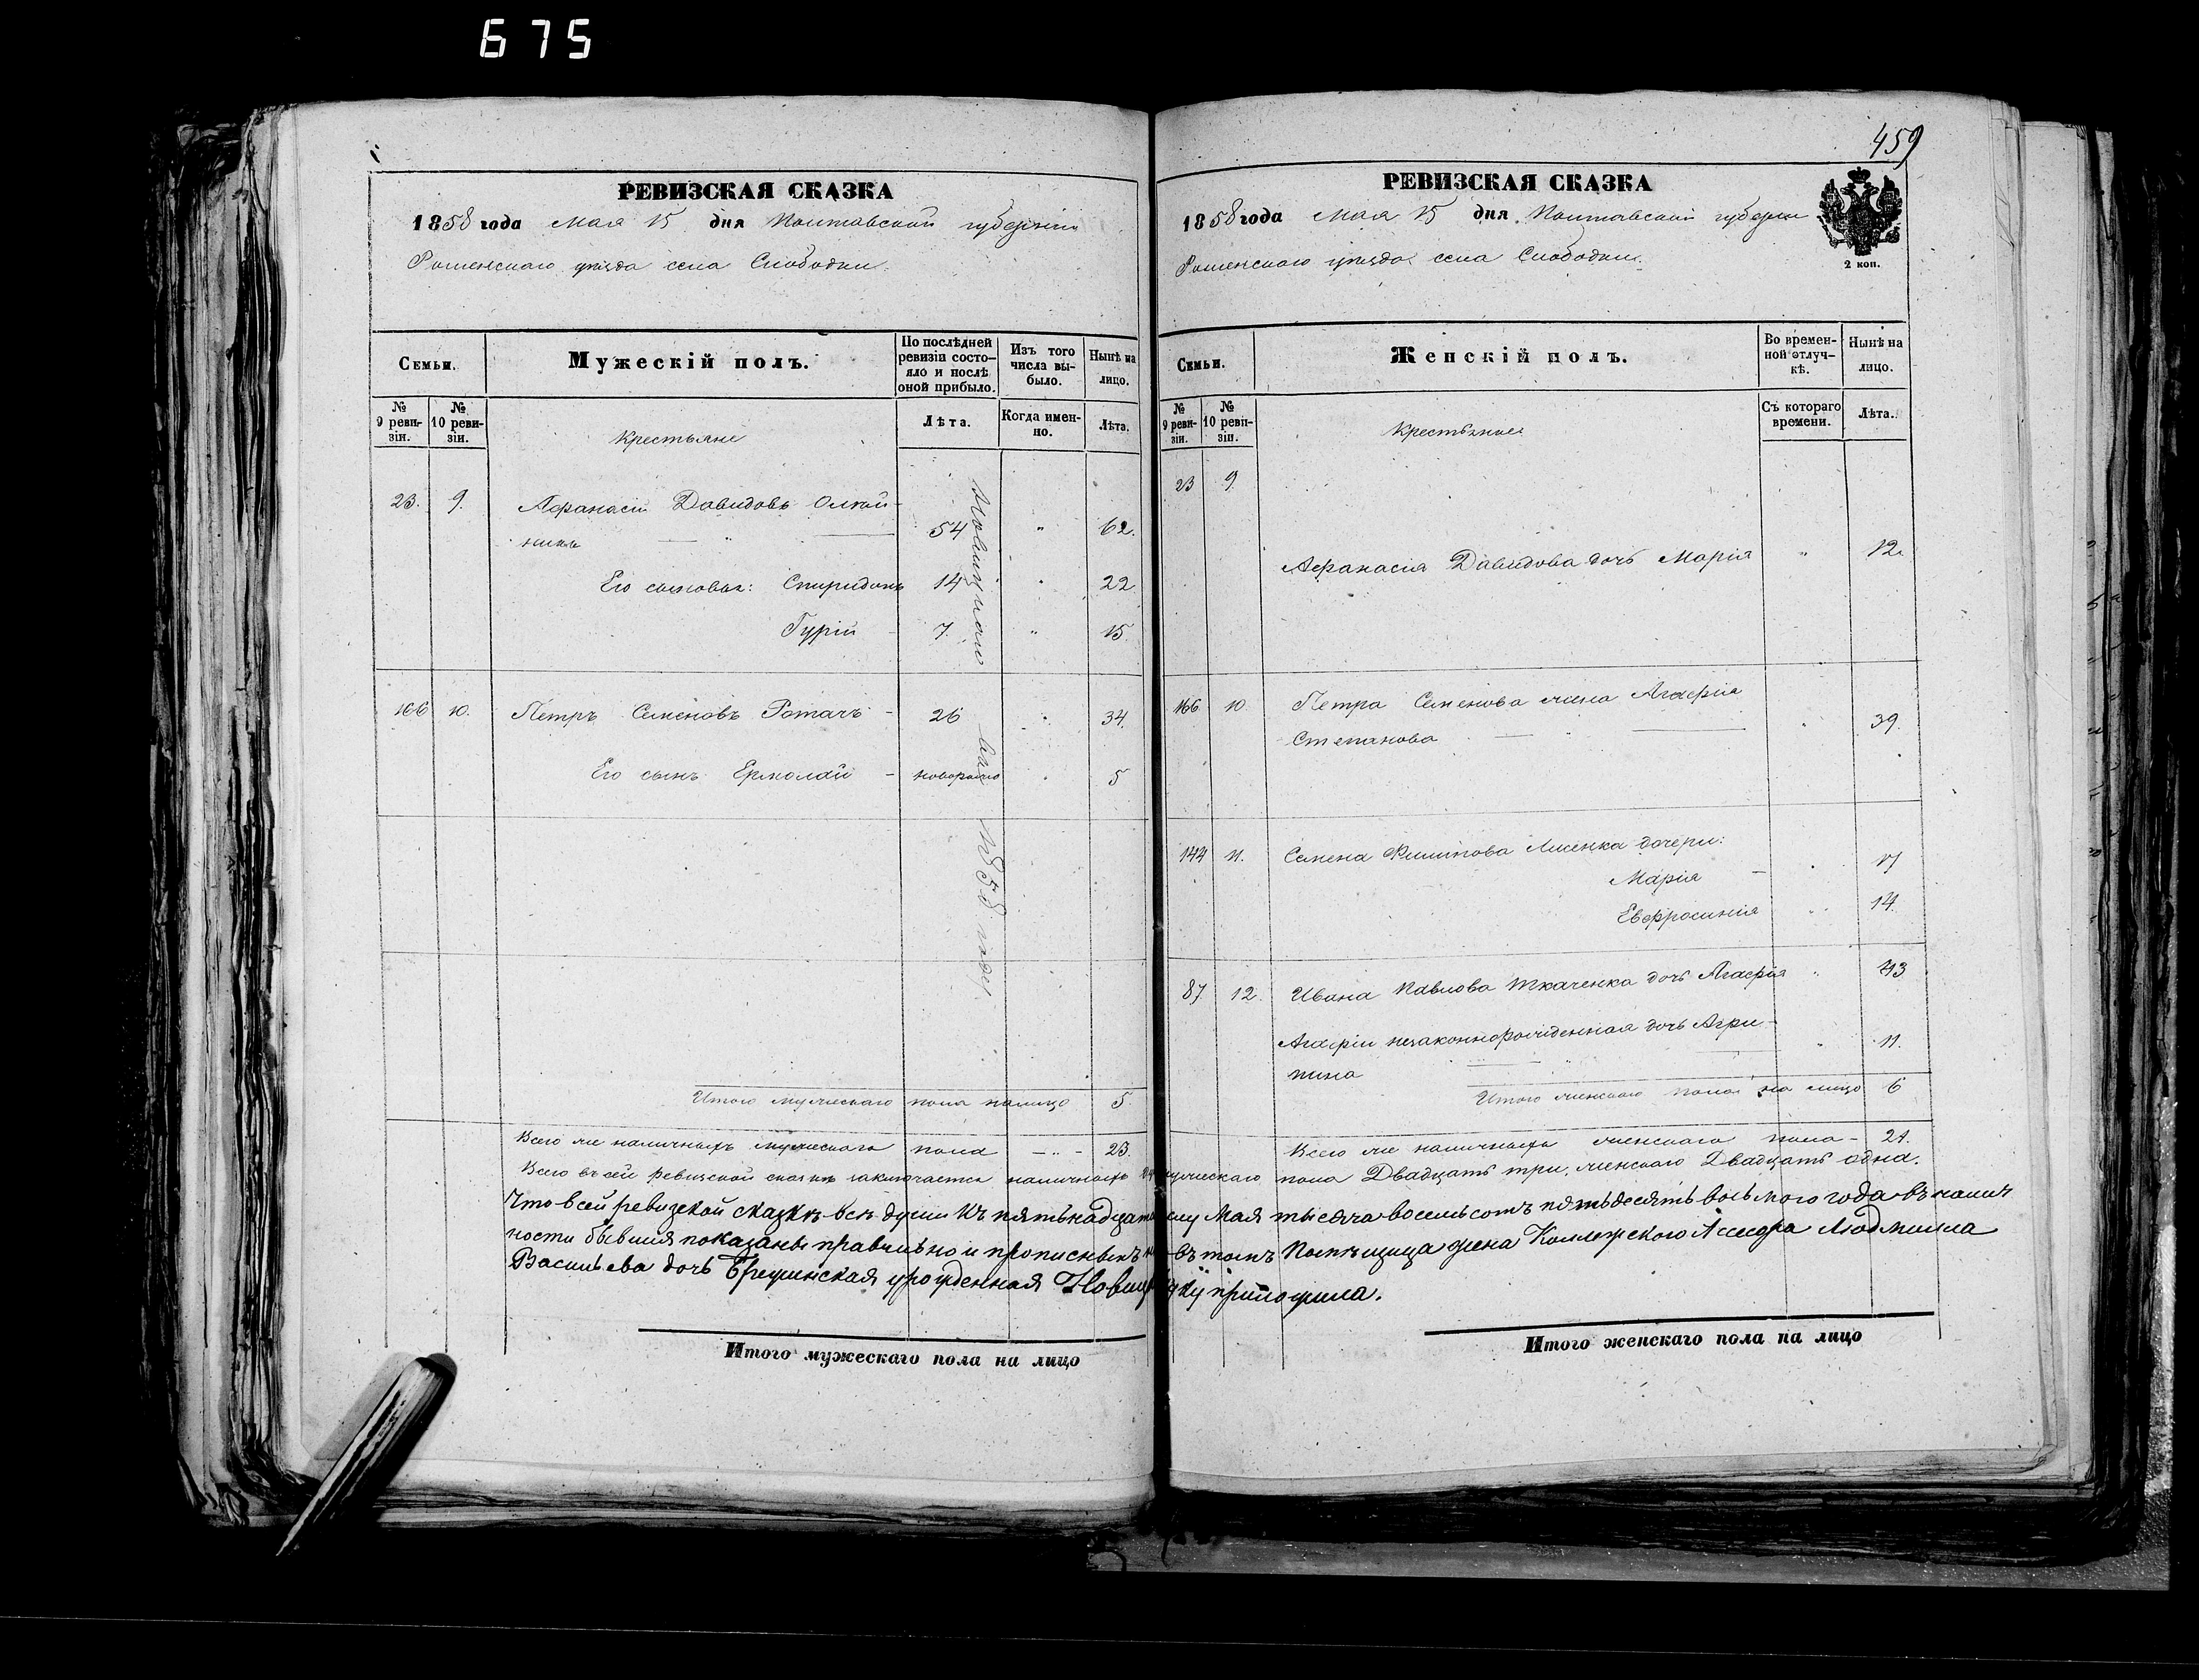 675
459
РЕВИЗСКАЯ СКАЗКА
1858 года Мая 15 дня Полтавской губерніи
Роменскаго уѣзда села Слободки.
Семьи.
Мужескій полъ.
По послѣдней ревизіи состояло и послѣ оной прибыло.
Изъ того числа выбыло.
Нынѣ на лицо.
№ 9 ревизіи.
№ 10 ревизіи.
Крестьяне
Лѣта.
Когда именно.
Лѣта.
23. 9. Афанасій Давидовъ Олтай-
никъ — " — 54 " 62.
Его сыновья: Спиридонъ 14 " 22
Гурій - 7. " 15.
166 10. Петръ Семеновъ Ротачъ - 26 " 34.
Его сынъ Ермолай - новорож " 5
1858 году
Итого мужескаго пола налицо 5.
Всего же наличныхъ мужескаго пола - " - 23.
РЕВИЗСКАЯ СКАЗКА
1858 года Мая 15 дня Полтавской губерніи
Роменскаго уѣзда села Слободки.
2 коп.
Семьи.
Женскій полъ.
Во временной отлучкѣ.
Нынѣ на лицо.
№ 9 ревизіи.
№ 10 ревизіи.
Съ котораго времени.
Лѣта.
23 9
Афанасія Давидова дочь Марія " 12.
166 10 Петра Семенова жена Агафія
Степанова — " — " 39.
144 11. Семена Филипова Лисенка дочери:
Марія - " 17
Евфросинія " 14.
87 12. Ивана Павлова Ткаченка дочь Агафія " 43
Агафіи незаконнорожденная дочь Агри-
пина " 11.
Итого женскаго пола на лицо 6
Всего же наличныхъ женскаго пола - 21.
Всего въ сей ревизской сказкѣ заключается наличныхъ мужескаго пола Двадцать три, женскаго Двадцать одна.
Что в сей ревизской сказкѣ всѣ души къ пятьнадцатому Мая тысяча восемьсотъ пятьдесятъ восьмого года въ налич
ности бывшія показаны правильно и прописныхъ въ томъ Помѣщица жена Коллежского Ассесора Людмила
Васильева дочь урожденная приложила.
Итого мужескаго пола на лицо
Итого женскаго пола на лицо